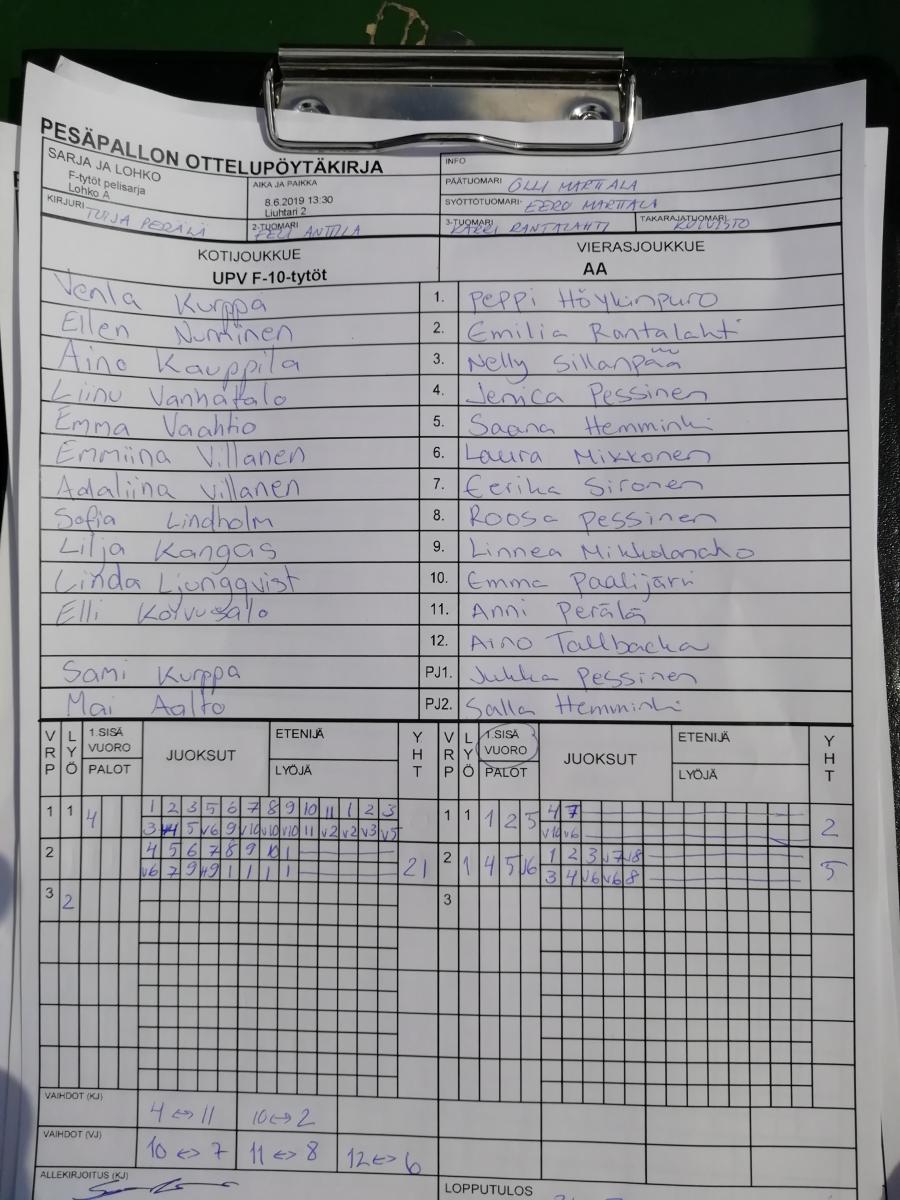 PESÄPALLON OTTELUPÖYTÄKIRJA
SARJA JA LOHKO
F-tytöt pelisarja
Lohko A
AIKA JA PAIKKA
8.6.2019 13:30
Liuhtari 2
KIRJURI TUIJA PERÄLÄ
2-TUOMARI ANTTILA
INFO
PÄÄTUOMARI OLLI MARTTALA
SYÖTTÖTUOMARI EERO MARTTALA
3-TUOMARI KARRI RANTALAHTI
TAKARAJATUOMARI KOIVISTO
KOTIJOUKKUE
UPV F-10-tytöt
VIERASJOUKKUE
AA
Venla Kurppa 1. Peppi Höykinpuro
Ellen Nurminen 2. Emilia Rantalahti
Aino Kauppila 3. Nelly Sillanpää
Liinu Vanhatalo 4. Jenica Pessinen
Emma Vaahtio 5. Saana Hemminki
Emmiina Villanen 6. Laura Mikkonen
Adaliina Villanen 7. Eerika Sironen
Sofia Lindholm 8. Roosa Pessinen
Lilja Kangas 9. Linnea Mikkolanaho
Linda Ljungqvist 10. Emma Paalijärvi
Elli Koivusalo 11. Anni Perälä
12. Aino Tallbacka
Sami Kurppa PJ1. Jukka Pessinen
Mai Aalto PJ2. Salla Hemminki
VRP LYÖ 1.SISÄ VUORO PALOT JUOKSUT ETENIJÄ LYÖJÄ YHT VRP LYÖ 1.SISÄ VUORO PALOT JUOKSUT ETENIJÄ LYÖJÄ YHT
1 1 4 1 2 3 5 6 7 8 9 10 11 1 2 3 1 1 1 2 5 4 7 2
3 4 5 v6 9 v10 v10 v10 11 v2 v2 v3 v5 v10 v6
2 4 5 6 7 8 9 10 1 21 2 1 4 5 v6 1 2 3 v7 v8 5
v6 7 9 v9 1 1 1 1 3 4 v6 v6 8
3 2 3
VAIHDOT (KJ) 4 ↔ 11 10 ↔ 2
VAIHDOT (VJ) 10 ↔ 7 11 ↔ 8 12 ↔ 6
ALLEKIRJOITUS (KJ)
LOPPUTULOS